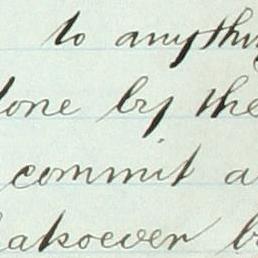 to anythin
done by the
commit a
hatsoever b